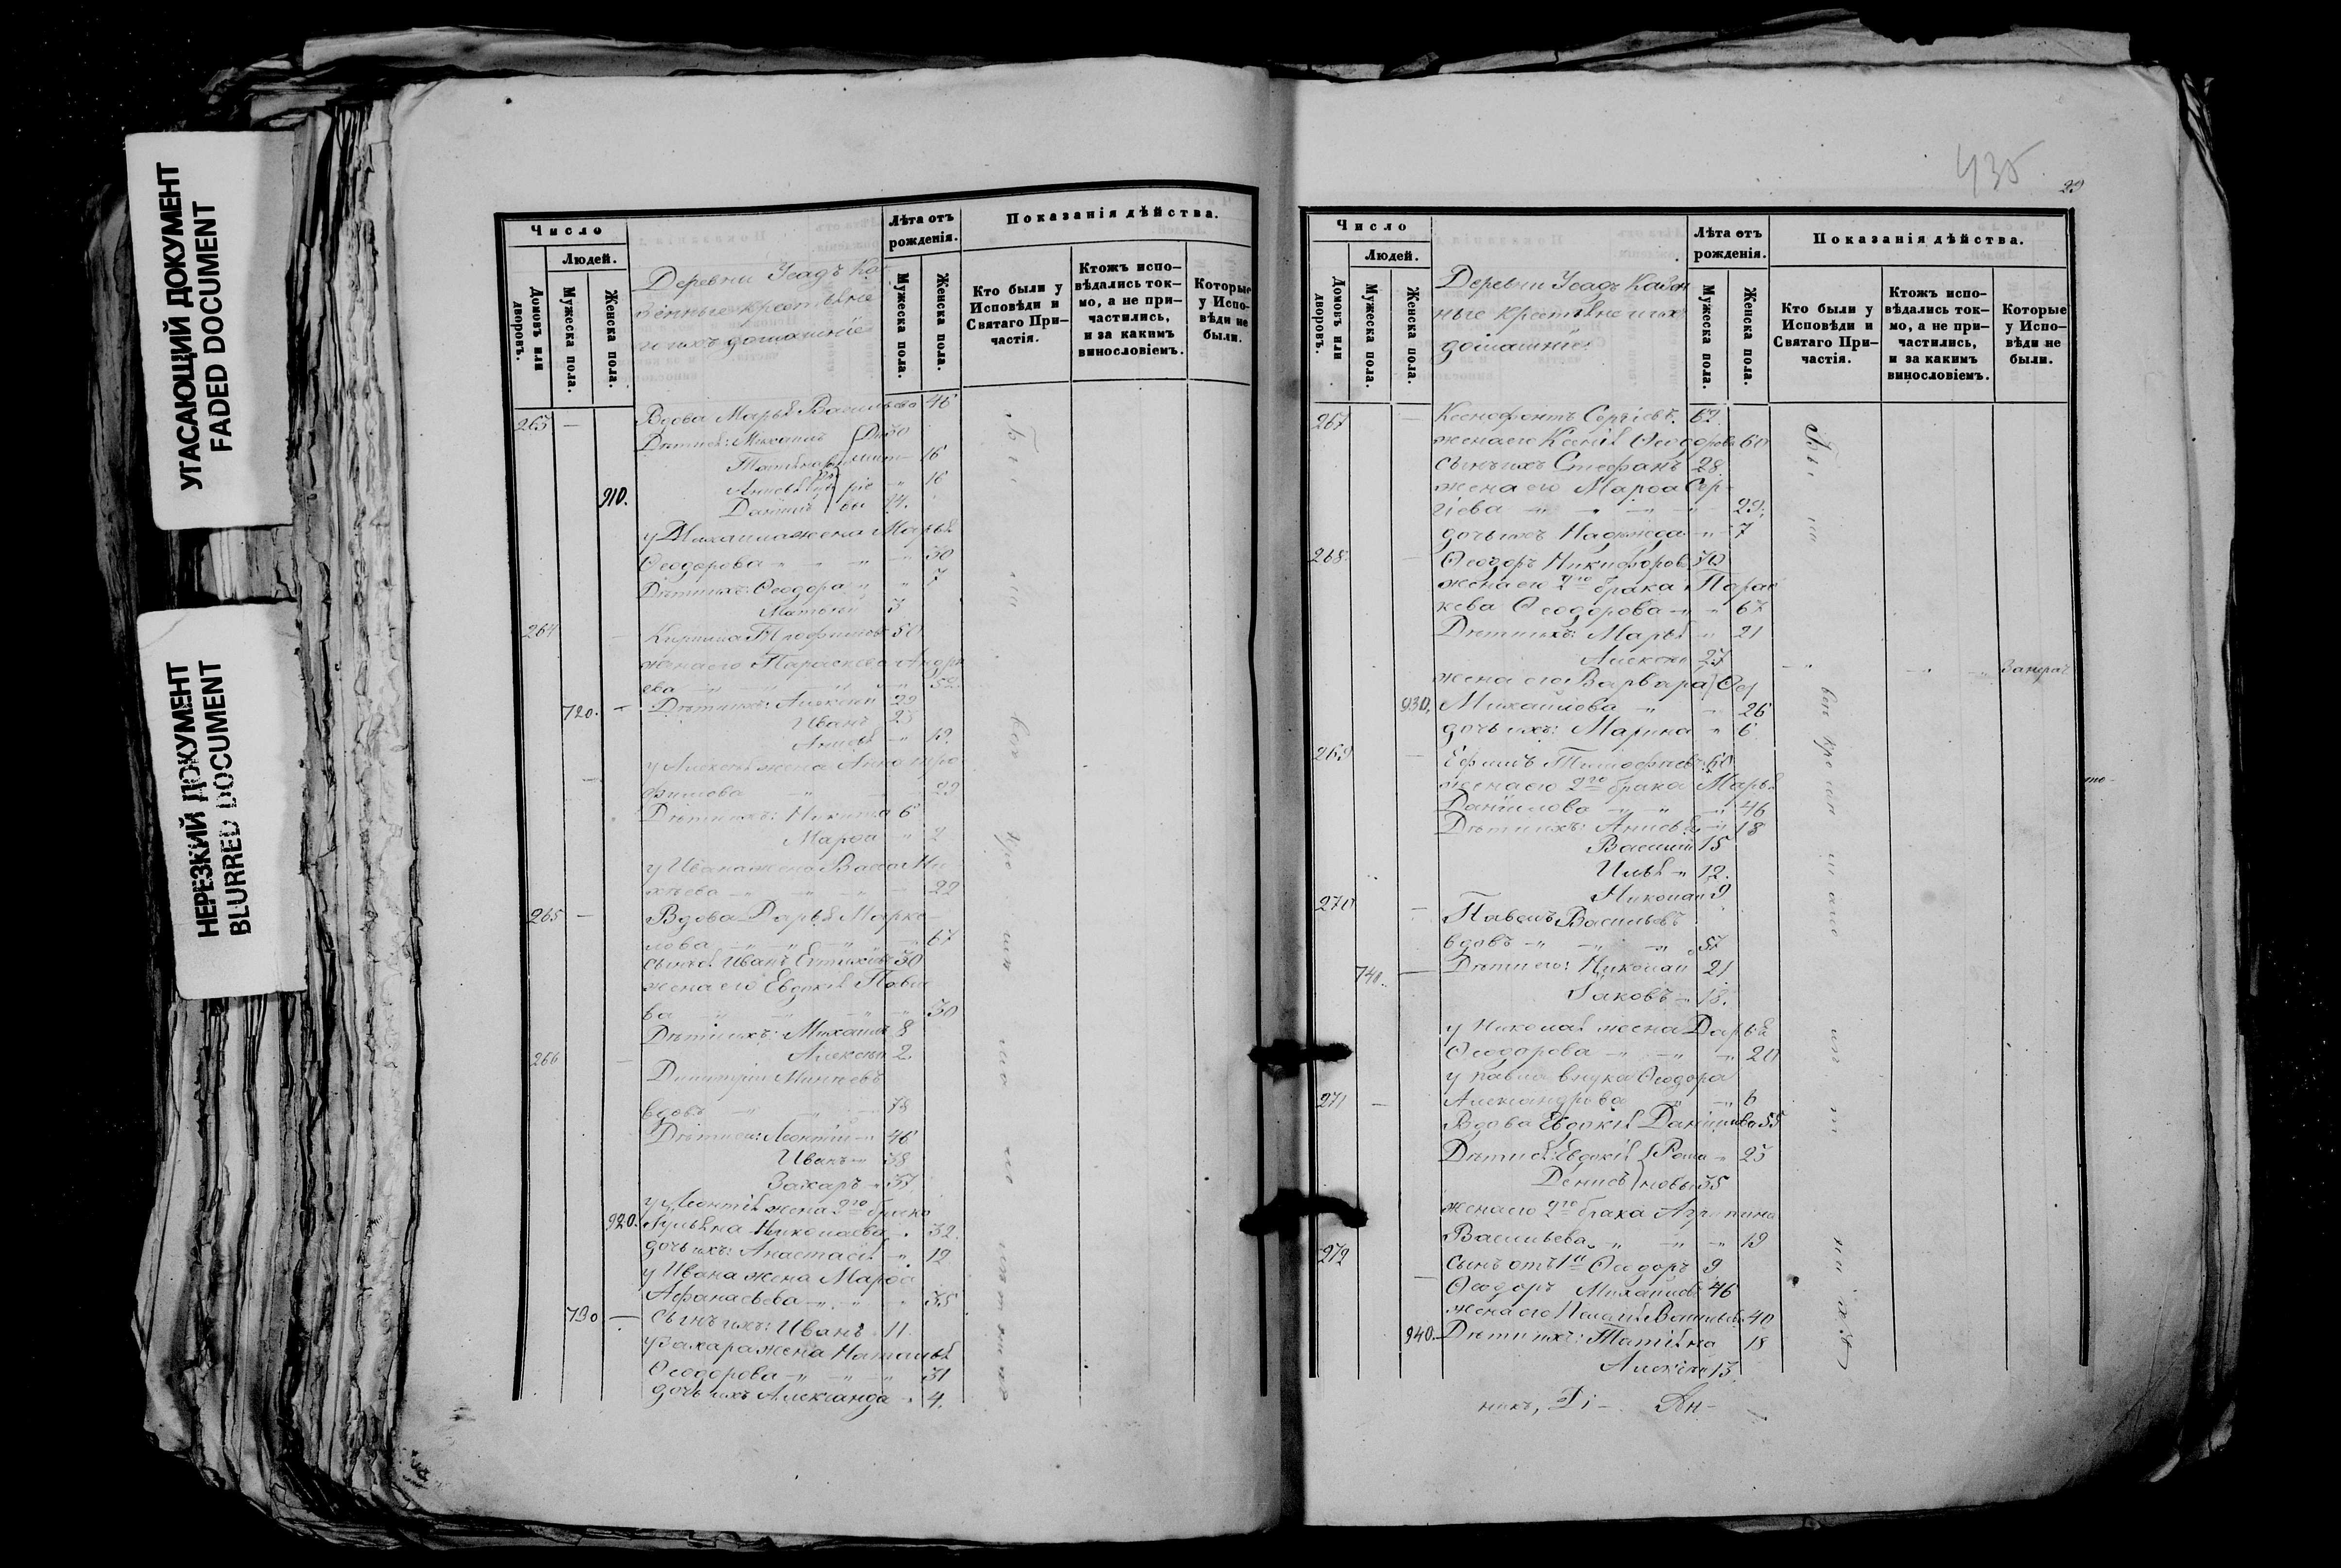 УГАСАЮЩИЙ ДОКУМЕНТ
FADED DOCUMENT
НЕРЕЗКИЙ ДОКУМЕНТ
BLURRED DOCUMENT
Число
Людей.
Домовъ или дворовъ.
Мужеска пола.
Женска пола.
Деревни Усадъ Каз
енные крестьяне
и ихъ домашніе
Лѣта отъ рожденія.
Мужеска пола.
Женска пола.
Показанія дѣйства.
Кто были у Исповѣди и Святаго При-
частія.
Ктожъ испо-
вѣдались ток-
мо, а не при-
частились,
и за какимъ
винословіемъ.
Которые
у Испо-
вѣди не
были.
263 — Вдова Марья Васильева 46
Дѣти ея: Михаилъ 30
Татьяна 16
Анисья 16
910. Даніилъ 14.
у Михаила жена Марья
Ѳеодорова 30
Дѣти ихъ: Ѳеодора 7
Матвѣй 3
264 Кирилла Трофимовъ 50
жена его Параскева Андре
ева 52
720. Дѣти ихъ: Алексѣй 29
Иванъ 25
Анисья 19
у Алексѣя жена Анна Тро
фимова 29
Дѣти ихъ: Никита 6
Марѳа 2
у Ивана жена Васса Ми
хѣева 22
265 — Вдова Дарья Марке
лова 67
сынъ ея Иванъ 30
жена его Евдокія Павло
ва 30
Дѣти ихъ: Михаилъ 8
Алексѣй 2
266 Димитрій Минѣевъ
вдовъ 78
Дѣти его: Леонтій 46
Иванъ 38
Захаръ 37
у Леонтія жена 2го брака
920. Ульяна Николаева 32
дочь ихъ: Анастасія 12
у Ивана жена Марѳа
Афанасьева 35
730 — сынъ ихъ: Иванъ 11
у Захара жена Наталья
Ѳеодорова 31
дочь ихъ Александра 4.
435
29
Число
Людей.
Домовъ или дворовъ.
Мужеска пола.
Женска пола.
Деревни Усадъ Казен
ные крестьяне и ихъ
домашніе
Лѣта отъ рожденія.
Мужеска пола.
Женска пола.
Показанія дѣйства.
Кто были у
Исповѣди и
Святаго При-
частія.
Ктожъ испо-
вѣдались ток-
мо, а не при-
частились,
и за какимъ
винословіемъ.
Которые
у Испо-
вѣди не
были.
267 — Ксенофонтъ Сергіевъ. 62
жена его Ксенія Ѳеодорова 60
сынъ ихъ Стефанъ 28
жена его Марѳа Сер-
гіева 29
дочь ихъ Надежда 7
268 — Ѳеодоръ Никифоровъ 70
жена его 2го брака Парас
кева Ѳеодорова 67
Дѣти ихъ: Марья 21
Алексѣй 27
жена его Варвара
930. Михайлова 26
дочь ихъ: Марина 6
269 — Ефимъ Тимофеевъ 60
жена его 2го брака Марья
Даніилова 46
Дѣти ихъ: Анисья 18
Василій 15
Илья 12.
Николай 9
270 — Павелъ Васильевъ
вдовъ 57
740. — Дѣти его: Николай 21
Іаковъ 18.
у Николая жена Дарья
Ѳеодорова 20
у Павла внука Ѳеодора
Александрова 6
271 — Вдова Евдокія Даніилова 55
Дѣти ея: Евдокія 25
Денисъ 35
жена его 2го брака Агрипина
Васильева 19
сынъ отъ 1й Ѳеодоръ 9
272 — Ѳеодоръ Михайловъ 46
жена его Пелагія Васильева 40
940. Дѣти ихъ: Татьяна 18
Алексѣй 13.